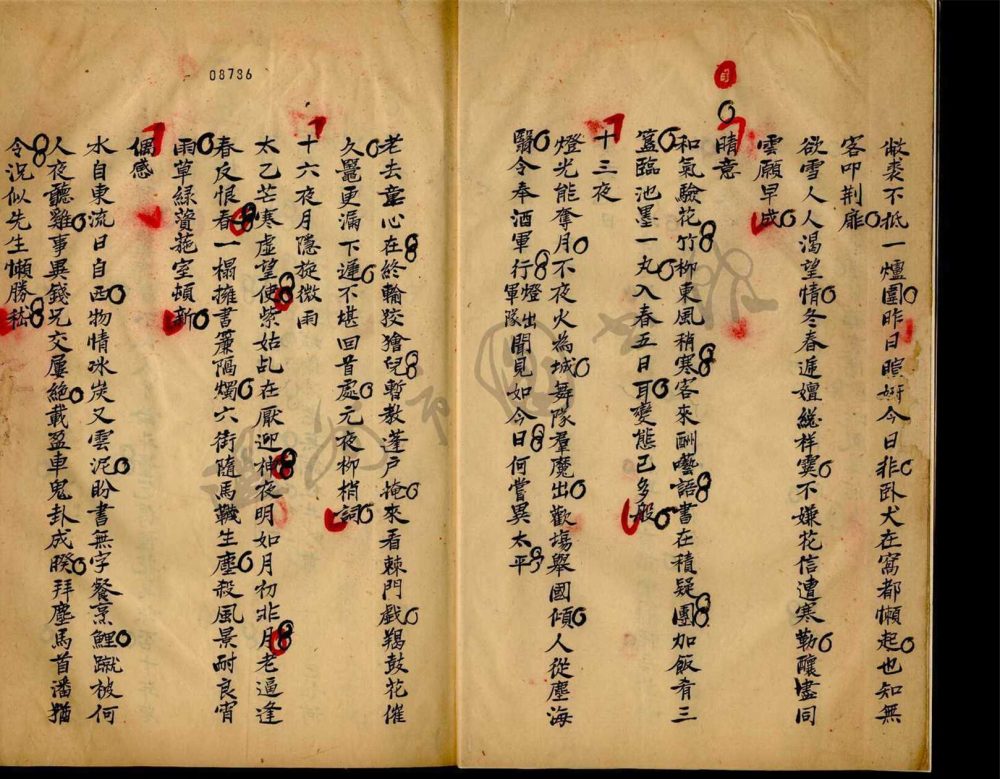 敝裘不抵一爐圍昨日暄姸今日非臥犬在窩都懶起也知無
客叩荆扉
欲雪人人渴望情冬春遞嬗總祥霙不嫌花信遭寒勒釀盡同
雲願早成
晴意
和氣驗花竹柳東風稍寒客來酬囈語書在積疑團加飯肴三
簋臨池墨一丸入春五日耳變態已多般
十三夜
燈光能奪月不夜火為城舞隊羣魔出歡塲舉國傾人從塵海
醫令奉酒軍行軍燈隊出聞見如今日何嘗異太平
08736
老去童心在終輪狡獪兒暫教蓬戶掩來看棘門戲羯鼓花催
久鼉更漏下遲不堪回首處元夜柳梢詞
十六夜月隱旋微雨
太乙芒寒虛望使紫姑乩在厭迎神夜明如月初非月老逼逢
春反恨春一榻擁書簾隔燭六街隨馬韈生塵殺風景耐良宵
雨草綠資葹室頓新
偶感
水自東流日自西物情冰炭又雲泥盼書無字餐烹鯉蹴被何
人夜聽雞事異錢兄交屢絶載盈車鬼卦成睽拜塵馬首潘猶
令況似先生懶勝嵇